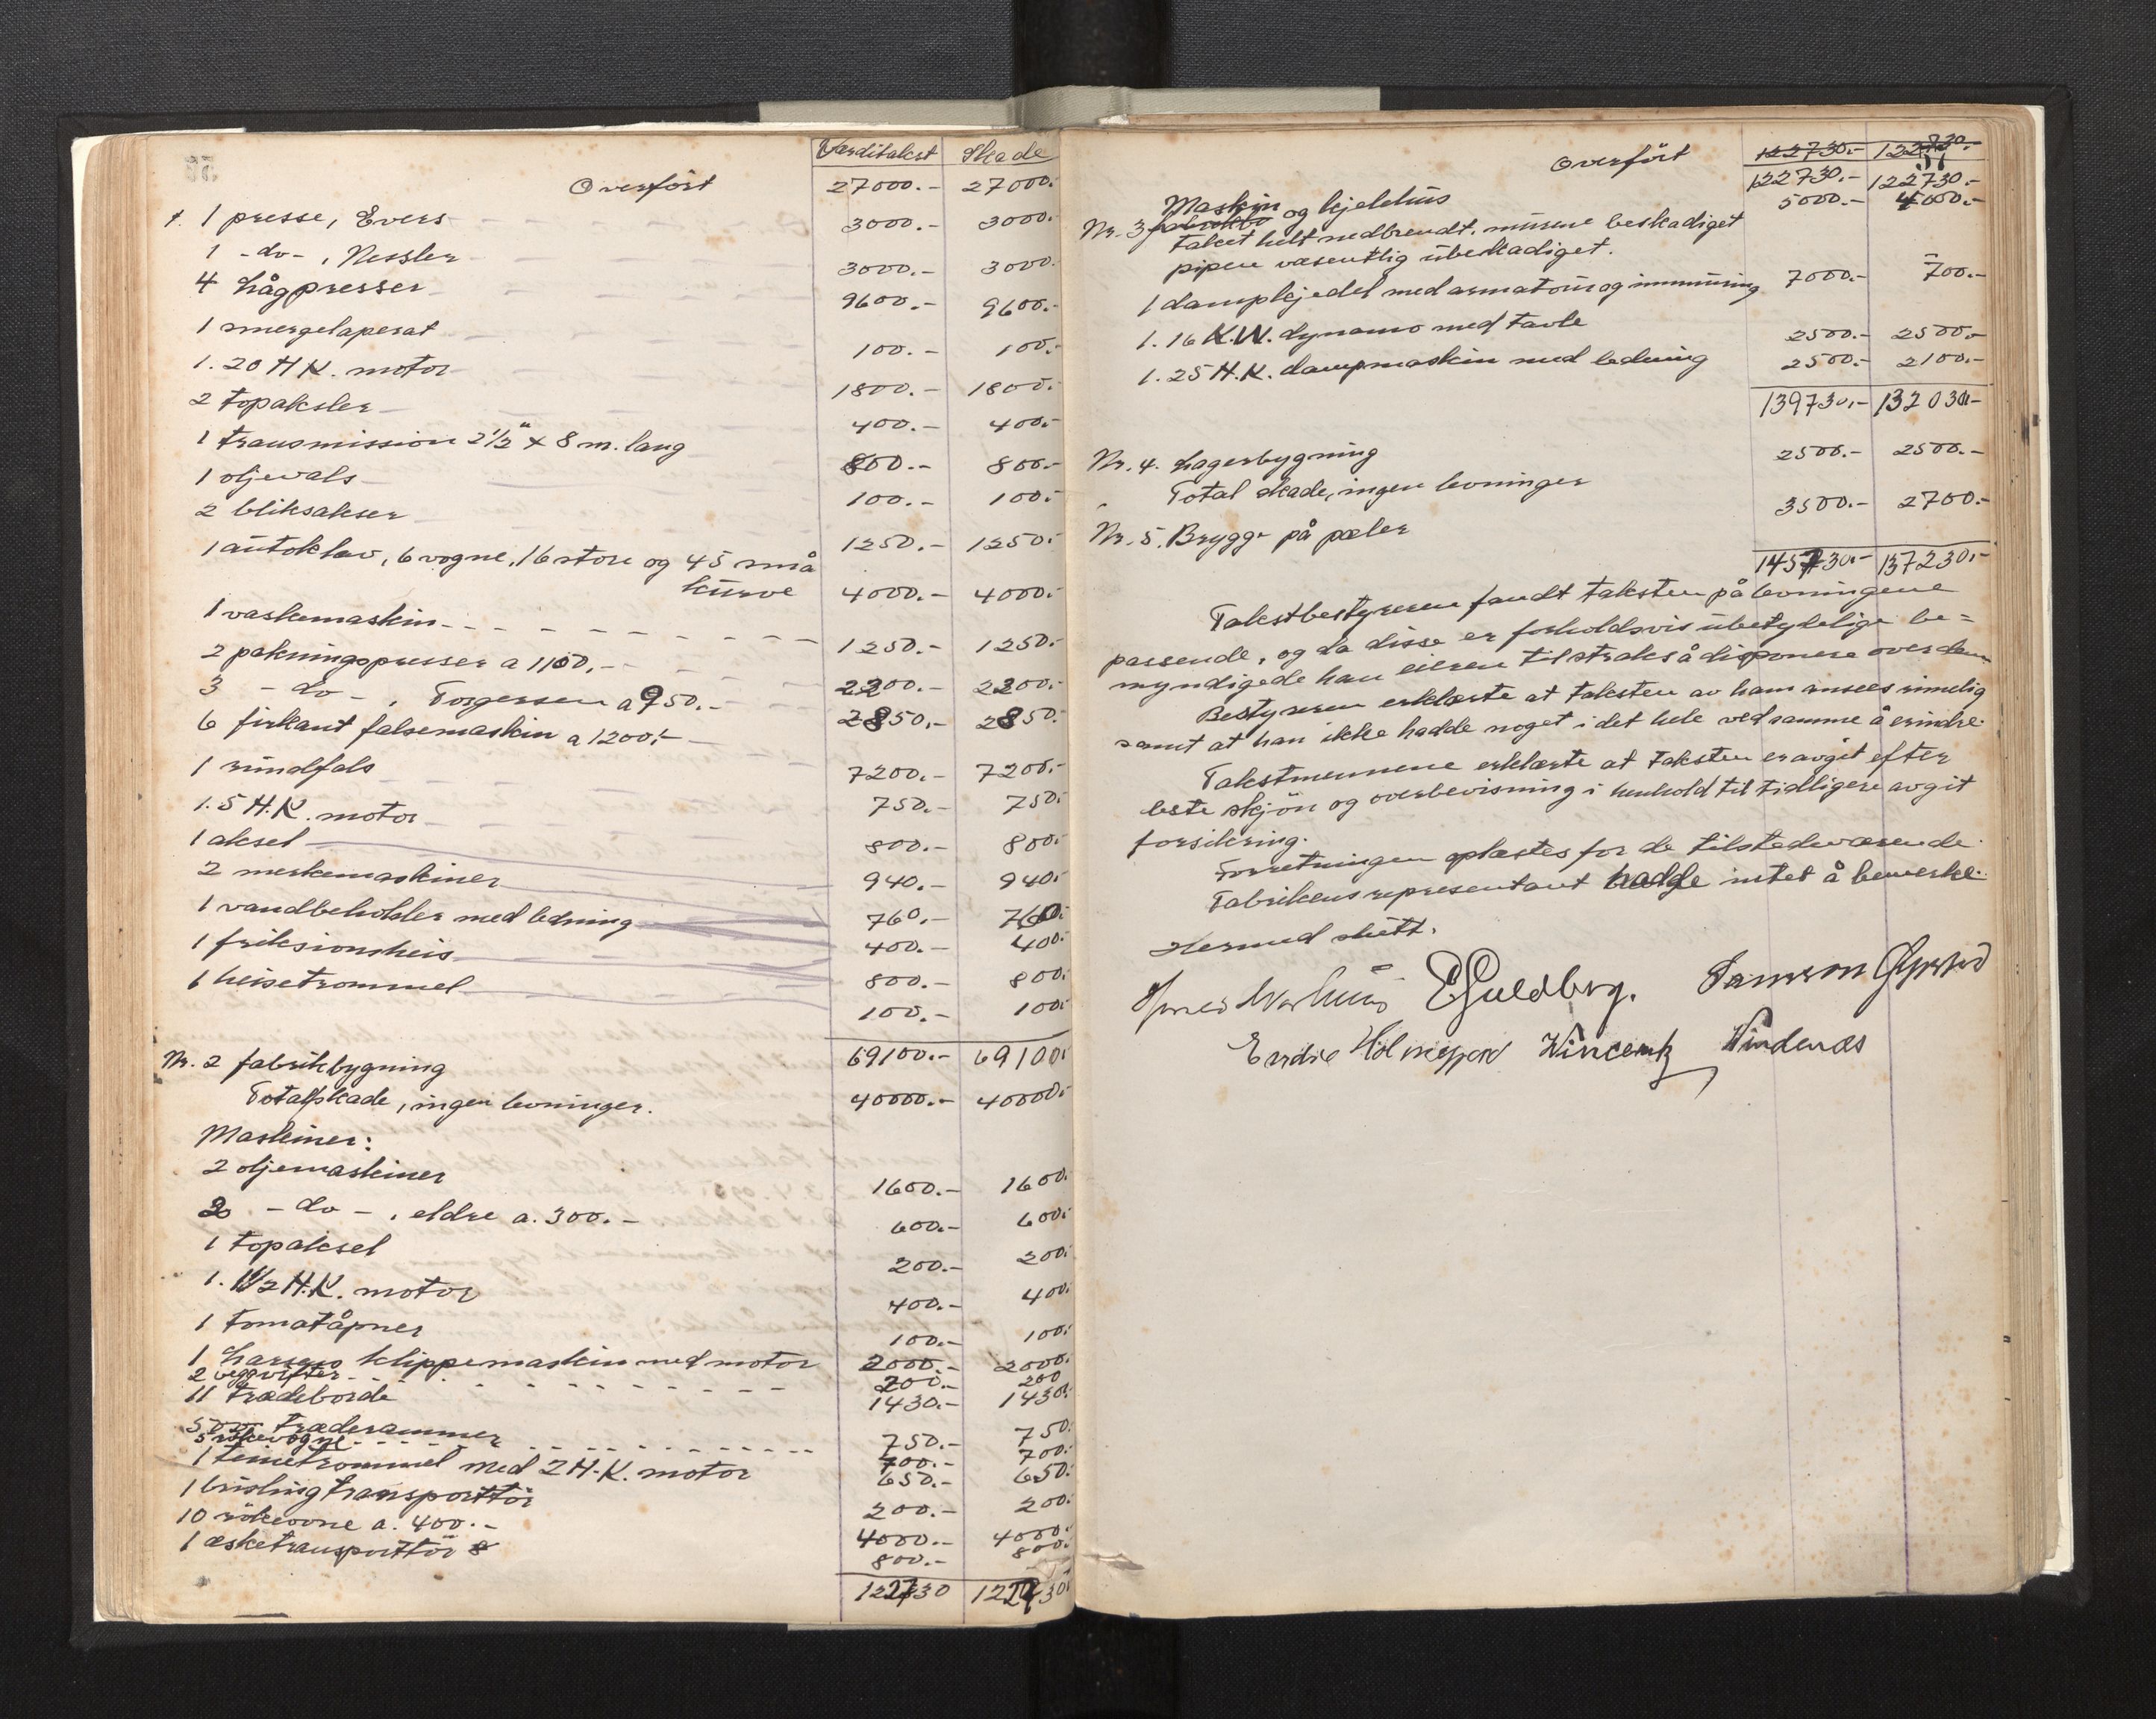 Værditakst Skade
Overfört 27000.- 27000.-
1. 1 presse, Evers 3000.- 3000.-
1 -do-, Nessler 3000.- 3000.-
4 Lågpresser 9600.- 9600.-
1 smergelaperat 100.- 100.-
1. 20 H.K. motor 1800.- 1800.-
2 topaksler 400.- 400.-
1 transmission 2½" x 8 m. lang 800.- 800.-
1 oljevals 100.- 100.-
2 bliksakser 1250.- 1250.-
1 autoklav, 6 vogne, 16 store og 45 små
kurve 4000.- 4000.-
1 vaskemaskin 1250.- 1250.-
2 pakningspresser a 1100.- 2200.- 2200.-
3 -do-, Torgersen a 950.- 2850.- 2850.-
6 firkant falsemaskin a 1200.- 7200.- 7200.-
1 rundfals 750.- 750.-
1. 5 H.K. motor 800.- 800.-
1 aksel 940.- 940.-
2 merkemaskiner 760.- 760.-
1 vandbeholder med ledning 400.- 400.-
1 friksionsheis 800.- 800.-
1 heisetrommel 100.- 100.-
69100.- 69100.-
Nr. 2 fabrikbygning
Totalskade, ingen levninger. 40000.- 40000.-
Maskiner:
2 oljemaskiner 1600.- 1600.-
2 -do-, eldre a. 300.- 600.- 600.-
1 topaksel 200.- 200.-
1. 1½ H.K. motor 400.- 400.-
1 tomatåpner 100.- 100.-
1 klippemaskin med motor 2000.- 2000.-
2 vegvifter 200.- 200
11 trædeborde 1430.- 1430.-
500 træderammer 750.- 750.-
5 rökevogne 700.- 700.-
1 teinetrommel med 2 H.K. motor 650.- 650.-
1 brislingtransporttör 200.- 200.-
10 rökeovne a. 400.- 4000.- 4000.-
1 æsketransporttör 800.- 800.-
122730 122730
57
Overfört 122730.- 122730.-
122730.- 122730.-
Nr. 3 Maskin og kjelehus 5000.- 4000.-
Taket helt nedbrendt, murene beskadiget
pipen væsentlig ubeskadiget.
1 dampkjedel med armatour og inmuring 7000.- 700.-
1. 16 K.W. dynamo med tavle 2500.- 2500.-
1. 25 H.K. dampmaskin med ledning 2500.- 2100.-
139730.- 132030.-
Nr. 4. Lagerbygning 2500.- 2500.-
Total skade, ingen levninger
Nr. 5. Brygge på pæler 3500.- 2700.-
145730.- 137230.-
Takstbestyreren fandt taksten på levningene
passende, og da disse er forholdsvis ubetydelige be=
myndigede han eieren til straks å disponere over dem
Bestyreren erklærte at taksten av ham ansees rimelig
samt at han ikke hadde noget i det hele ved samme å erindre.
Takstmennene erklærte at taksten er avgit efter
beste skjön og overbevisning i henhold til tidligere avgit
forsikring.
Forretningen oplæstes for de tilstedeværende.
Fabrikens representant hadde intet å bemerke.
Hermed slutt.
E Guldberg.
Vincentz Vindenes